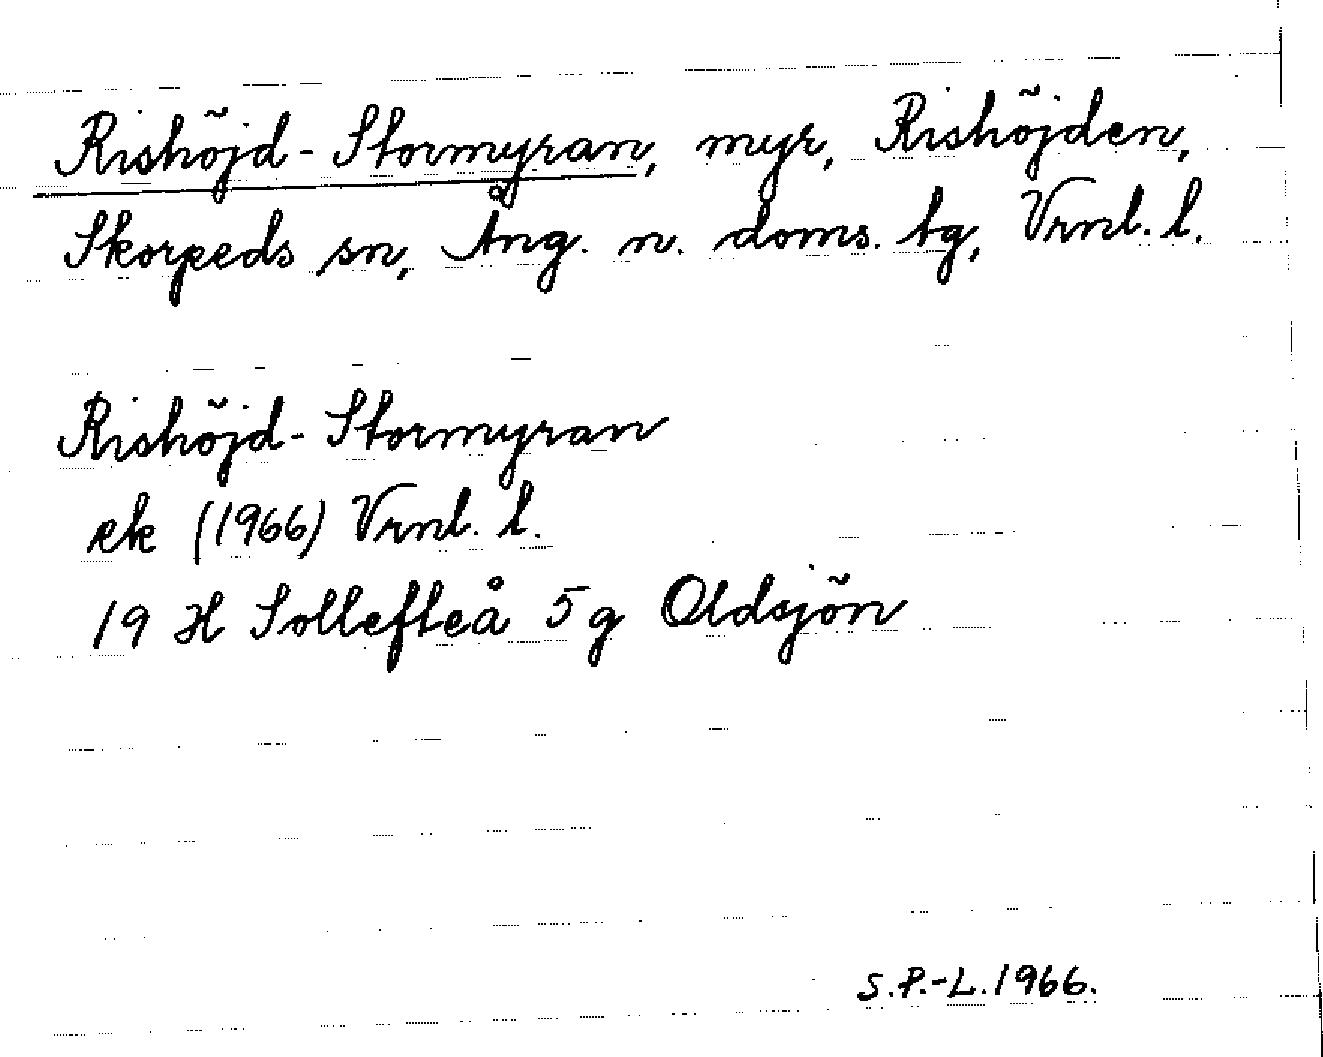 Rishöjd-Stormyran, myr, Rishöjden,
Skorpeds sn, Ång. n. doms. tg, Vrnl. l.
Rishöjd-Stormyran
ek (1966) Vrnl. l.
19 H Sollefteå 5 g Oldsjön
S.P.-L. 1966.